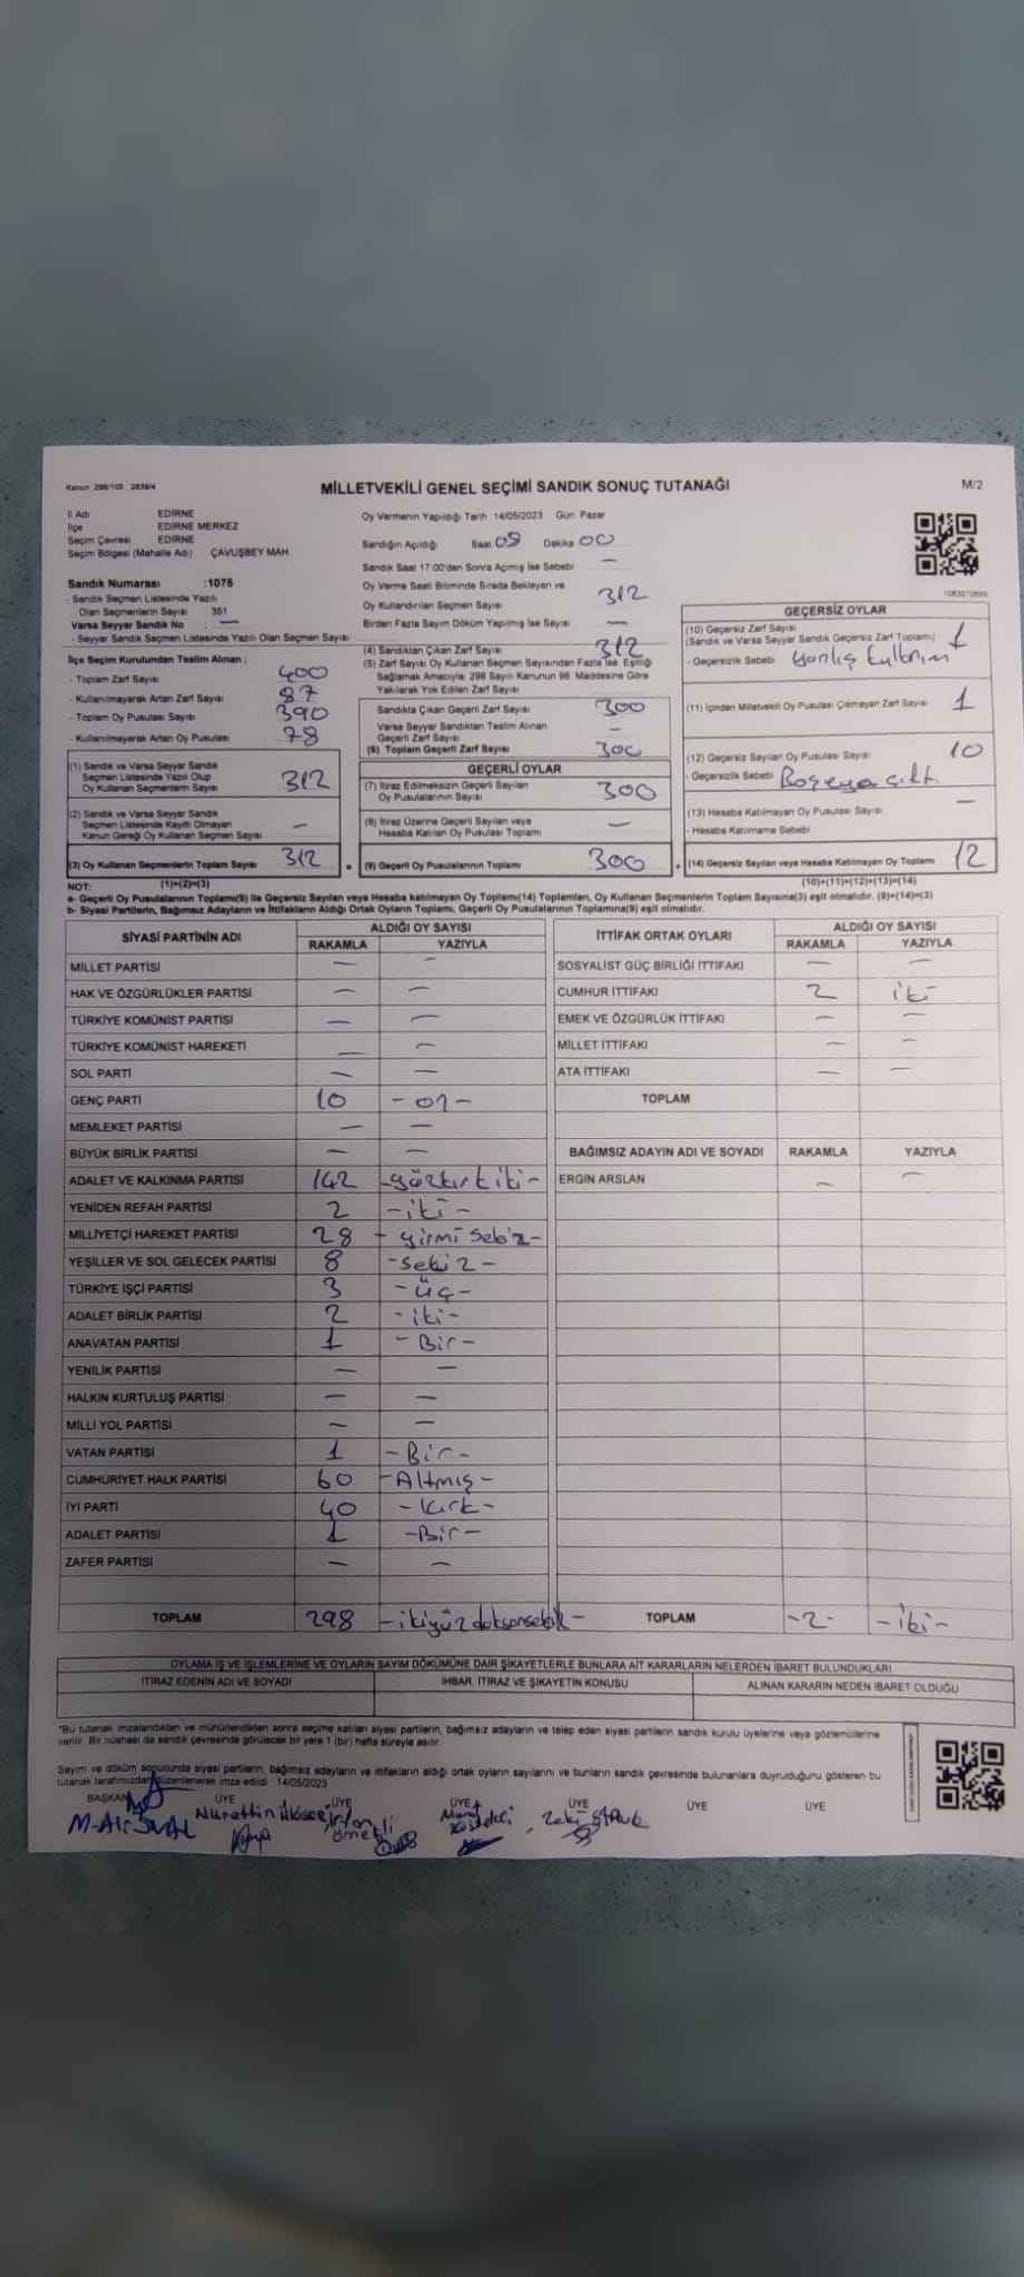 Kanun 298/105 2839/4
MİLLETVEKİLİ GENEL SEÇİMİ SANDIK SONUÇ TUTANAĞI
M/2
İl Adı EDİRNE
İlçe EDİRNE MERKEZ
Seçim Çevresi EDİRNE
Seçim Bölgesi (Mahalle Adı) ÇAVUŞBEY MAH.
Oy Vermenin Yapıldığı Tarih 14/05/2023 Gün Pazar
Sandığın Açıldığı Saat 05 Dakika 00
Sandık Saat 17:00'den Sonra Açılmış İse Sebebi —
Oy Verme Saati Bitiminde Sırada Bekleyen ve
Oy Kullandırılan Seçmen Sayısı 312
Birden Fazla Sayım Döküm Yapılmış İse Sayısı —
Sandık Numarası :1075
- Sandık Seçmen Listesinde Yazılı
Olan Seçmenlerin Sayısı 351
Varsa Seyyar Sandık No : —
- Seyyar Sandık Seçmen Listesinde Yazılı Olan Seçmen Sayısı
İlçe Seçim Kurulundan Teslim Alınan ;
- Toplam Zarf Sayısı 400
- Kullanılmayarak Artan Zarf Sayısı 87
- Toplam Oy Pusulası Sayısı 390
- Kullanılmayarak Artan Oy Pusulası 78
(1) Sandık ve Varsa Seyyar Sandık
Seçmen Listesinde Yazılı Olup
Oy Kullanan Seçmenlerin Sayısı 312
(2) Sandık ve Varsa Seyyar Sandık
Seçmen Listesinde Kayıtlı Olmayan
Kanun Gereği Oy Kullanan Seçmen Sayısı —
(3) Oy Kullanan Seçmenlerin Toplam Sayısı 312
(1)+(2)=(3)
(4) Sandıktan Çıkan Zarf Sayısı 312
(5) Zarf Sayısı Oy Kullanan Seçmen Sayısından Fazla İse, Eşitliği
Sağlamak Amacıyla; 298 Sayılı Kanunun 98. Maddesine Göre
Yakılarak Yok Edilen Zarf Sayısı —
Sandıkta Çıkan Geçerli Zarf Sayısı 300
Varsa Seyyar Sandıktan Teslim Alınan
Geçerli Zarf Sayısı —
(6) Toplam Geçerli Zarf Sayısı 300
GEÇERLİ OYLAR
(7) İtiraz Edilmeksizin Geçerli Sayılan
Oy Pusulalarının Sayısı 300
(8) İtiraz Üzerine Geçerli Sayılan veya
Hesaba Katılan Oy Pusulası Toplamı —
(9) Geçerli Oy Pusulalarının Toplamı 300
GEÇERSİZ OYLAR
(10) Geçersiz Zarf Sayısı
(Sandık ve Varsa Seyyar Sandık Geçersiz Zarf Toplamı) 1
- Geçersizlik Sebebi yanlış kullanım
(11) İçinden Milletvekili Oy Pusulası Çıkmayan Zarf Sayısı 1
(12) Geçersiz Sayılan Oy Pusulası Sayısı 10
- Geçersizlik Sebebi
(13) Hesaba Katılmayan Oy Pusulası Sayısı —
- Hesaba Katılmama Sebebi
(14) Geçersiz Sayılan veya Hesaba Katılmayan Oy Toplamı 12
(10)+(11)+(12)+(13)=(14)
NOT:
a- Geçerli Oy Pusulalarının Toplamı(9) ile Geçersiz Sayılan veya Hesaba katılmayan Oy Toplamı(14) Toplamları, Oy Kullanan Seçmenlerin Toplam Sayısına(3) eşit olmalıdır. (9)+(14)=(3)
b- Siyasi Partilerin, Bağımsız Adayların ve İttifakların Aldığı Ortak Oyların Toplamı, Geçerli Oy Pusulalarının Toplamına(9) eşit olmalıdır.
SİYASİ PARTİNİN ADI ALDIĞI OY SAYISI
RAKAMLA YAZIYLA
MİLLET PARTİSİ — —
HAK VE ÖZGÜRLÜKLER PARTİSİ — —
TÜRKİYE KOMÜNİST PARTİSİ — —
TÜRKİYE KOMÜNİST HAREKETİ — —
SOL PARTİ — —
GENÇ PARTİ 10 -on-
MEMLEKET PARTİSİ — —
BÜYÜK BİRLİK PARTİSİ — —
ADALET VE KALKINMA PARTİSİ 142 -yüzkırkiki-
YENİDEN REFAH PARTİSİ 2 -iki-
MİLLİYETÇİ HAREKET PARTİSİ 28 - yirmi sekiz-
YEŞİLLER VE SOL GELECEK PARTİSİ 8 -sekiz-
TÜRKİYE İŞÇİ PARTİSİ 3 -üç-
ADALET BİRLİK PARTİSİ 2 -iki-
ANAVATAN PARTİSİ 1 -Bir-
YENİLİK PARTİSİ — —
HALKIN KURTULUŞ PARTİSİ — —
MİLLİ YOL PARTİSİ — —
VATAN PARTİSİ 1 -Bir-
CUMHURİYET HALK PARTİSİ 60 -Altmış-
İYİ PARTİ 40 -kırk-
ADALET PARTİSİ 1 -Bir-
ZAFER PARTİSİ — —
TOPLAM 298 -ikiyüzdoksansekiz-
İTTİFAK ORTAK OYLARI ALDIĞI OY SAYISI
RAKAMLA YAZIYLA
SOSYALİST GÜÇ BİRLİĞİ İTTİFAKI — —
CUMHUR İTTİFAKI 2 iki
EMEK VE ÖZGÜRLÜK İTTİFAKI — —
MİLLET İTTİFAKI — —
ATA İTTİFAKI — —
TOPLAM
BAĞIMSIZ ADAYIN ADI VE SOYADI RAKAMLA YAZIYLA
ERGİN ARSLAN — —
TOPLAM -2- -iki-
OYLAMA İŞ VE İŞLEMLERİNE VE OYLARIN SAYIM DÖKÜMÜNE DAİR ŞİKAYETLERLE BUNLARA AİT KARARLARIN NELERDEN İBARET BULUNDUKLARI
İTİRAZ EDENİN ADI VE SOYADI İHBAR, İTİRAZ VE ŞİKAYETİN KONUSU ALINAN KARARIN NEDEN İBARET OLDUĞU
*Bu tutanak imzalandıktan ve mühürlendikten sonra seçime katılan siyasi partilerin, bağımsız adayların ve talep eden siyasi partilerin sandık kurulu üyelerine veya gözlemcilerine
verilir. Bir nüshası da sandık çevresinde görülecek bir yere 1 (bir) hafta süreyle asılır.
Sayım ve döküm sonucunda siyasi partilerin, bağımsız adayların ve ittifakların aldığı ortak oyların sayılarını ve bunların sandık çevresinde bulunanlara duyrulduğunu gösteren bu
tutanak tarafımızdan düzenlenerek imza edildi. 14/05/2023
BAŞKAN ÜYE ÜYE ÜYE ÜYE ÜYE ÜYE
Nurettin